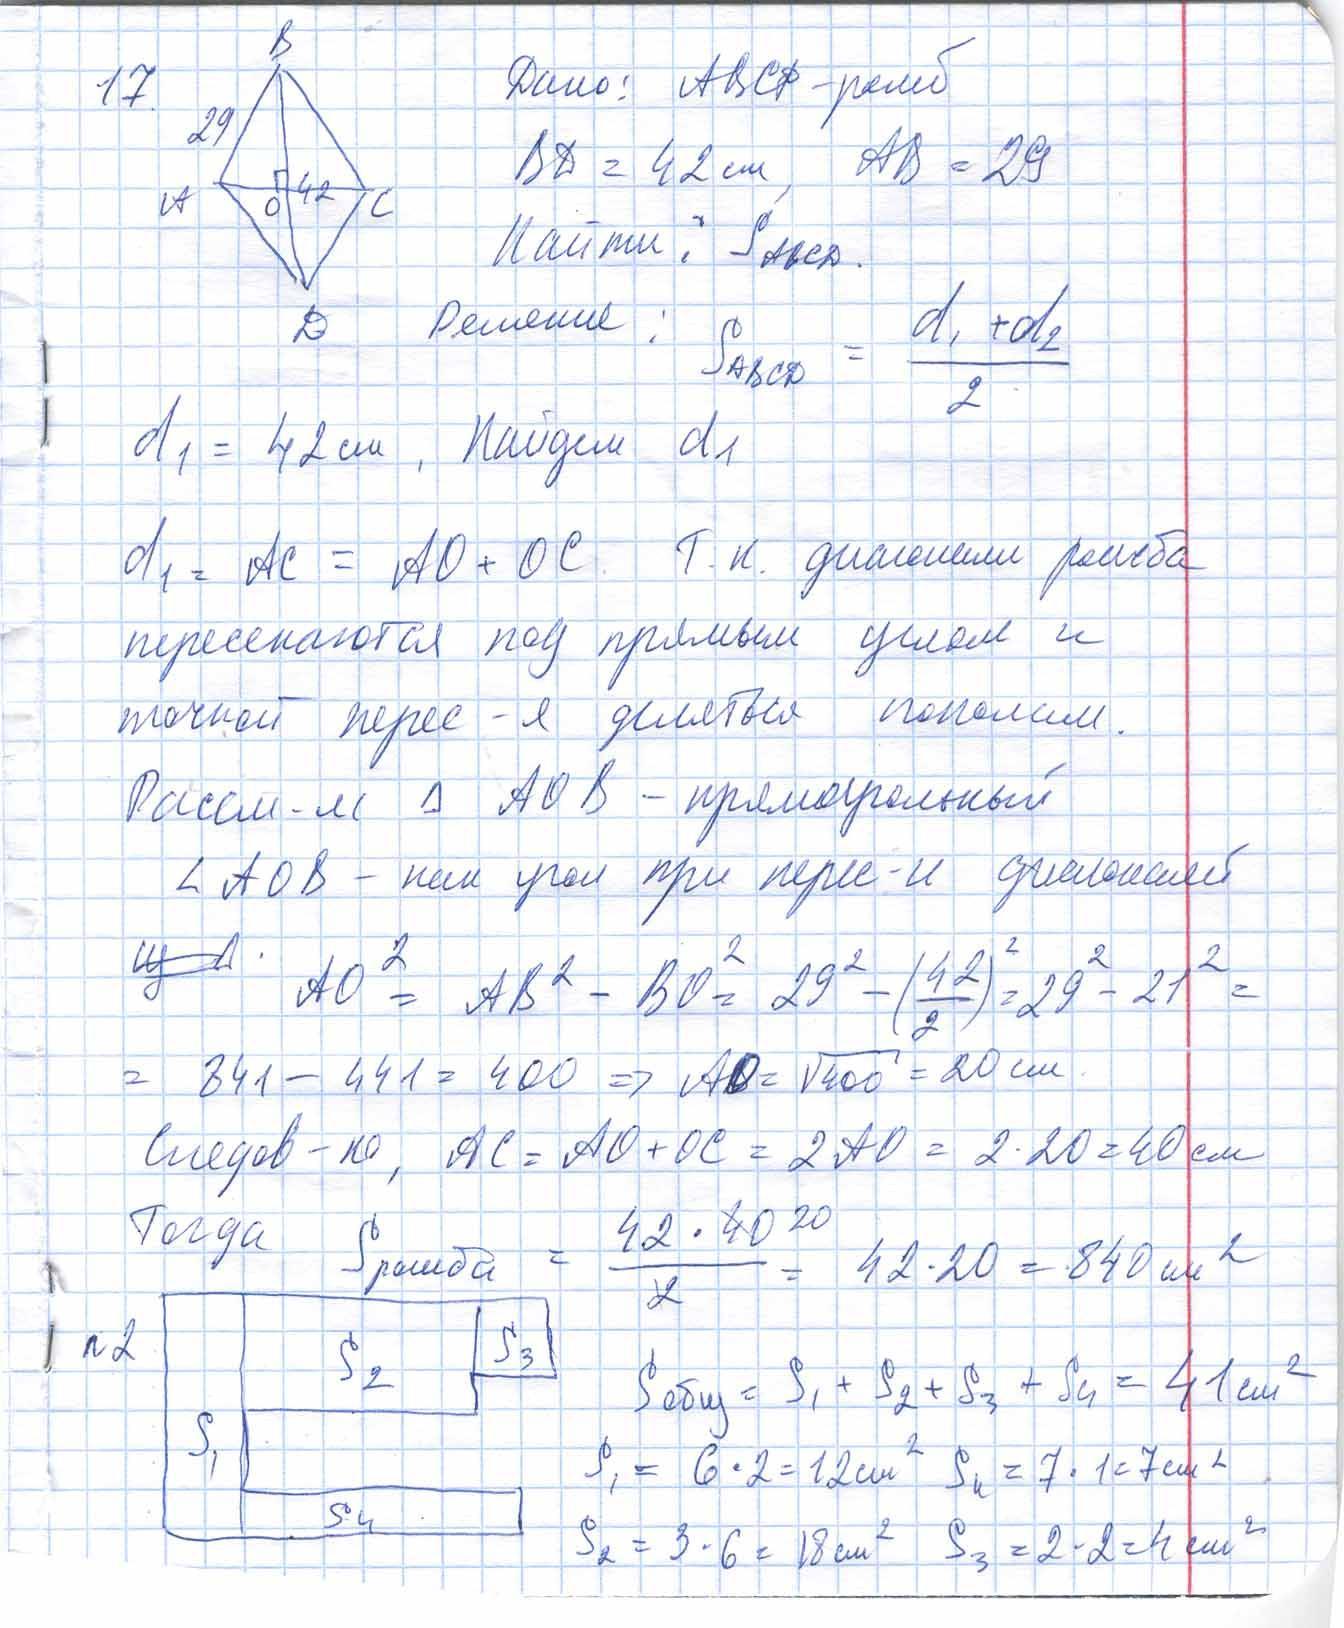 17.
B
29
A
O
42
C
D
Дано: ABCD - ромб
BD = 42 см, AB = 29
Найти: S ABCD.
Решение: S ABCD = (d₁ + d₂)/2
d₁ = 42 см, Найдем d₁
d₁ = AC = AO + OC. Т.к. диагонали ромба
пересекаются под прямым углом и
точкой перес-я деляться пополам.
Рассм-м Δ AOB - прямоугольный
∠AOB - как угол при перес-и диагоналей
AO² = AB² - BO² = 29² - (42/2)² = 29² - 21² =
= 841 - 441 = 400 => AO = √400 = 20 см.
Следов-но, AC = AO + OC = 2AO = 2·20 = 40 см
Тогда S ромба = 42·40 20/2 = 42·20 = 840 см²
n2
S₁
S₂
S₃
S₄
S общ = S₁ + S₂ + S₃ + S₄ = 41 см²
S₁ = 6·2 = 12 см² S₄ = 7·1 = 7 см²
S₂ = 3·6 = 18 см² S₃ = 2·2 = 4 см²